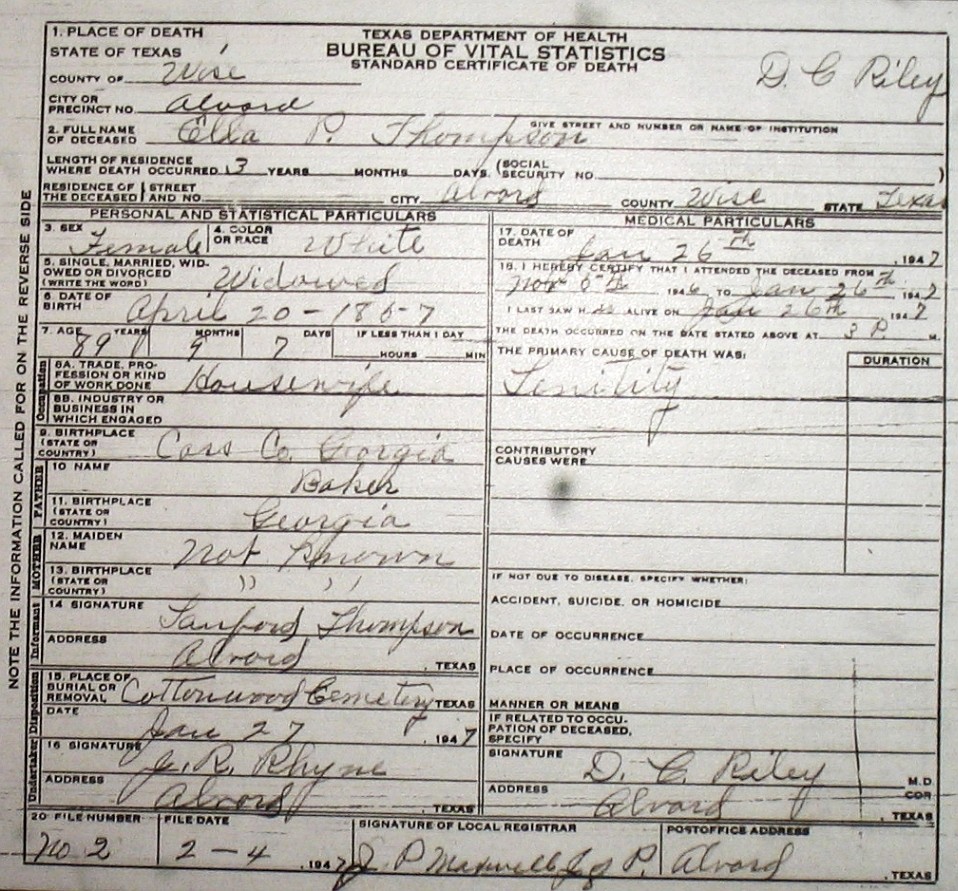 TEXAS DEPARTMENT OF HEALTH
BUREAU OF VITAL STATISTICS
STANDARD CERTIFICATE OF DEATH
D. C Riley
1. PLACE OF DEATH
STATE OF TEXAS
COUNTY OF Wise
CITY OR
PRECINCT NO. Alvord
GIVE STREET AND NUMBER OR NAME OF INSTITUTION
2. FULL NAME
OF DECEASED Ella P. Thompson
LENGTH OF RESIDENCE
WHERE DEATH OCCURRED 3 YEARS MONTHS DAYS (SOCIAL
SECURITY NO. )
RESIDENCE OF STREET
THE DECEASED AND NO. CITY Alvord COUNTY Wise STATE Texas
PERSONAL AND STATISTICAL PARTICULARS
3. SEX Female 4. COLOR
OR RACE White
5. SINGLE, MARRIED, WID-
OWED OR DIVORCED
(WRITE THE WORD) Widowed
6. DATE OF
BIRTH April 20-1857
7. AGE YEARS MONTHS DAYS IF LESS THAN 1 DAY
89 9 7 HOURS MIN
Occupation
8A. TRADE, PRO-
FESSION OR KIND
OF WORK DONE Housewife
8B. INDUSTRY OR
BUSINESS IN
WHICH ENGAGED
9. BIRTHPLACE
(STATE OR
COUNTRY) Cass Co. Georgia
FATHER
10 NAME
Baker
11. BIRTHPLACE
(STATE OR
COUNTRY) Georgia
MOTHER
12. MAIDEN
NAME Not Known
13. BIRTHPLACE
(STATE OR
COUNTRY) )) ))
Informant
14 SIGNATURE Sanford Thompson
ADDRESS
Alvord , TEXAS
Disposition
15. PLACE OF
BURIAL OR
REMOVAL Cottonwood Cemetery TEXAS
DATE
Jan 27 , 1947
Undertaker
16 SIGNATURE J. R. Rhyne
ADDRESS
Alvord , TEXAS
MEDICAL PARTICULARS
17. DATE OF
DEATH Jan 26th , 1947
18. I HEREBY CERTIFY THAT I ATTENDED THE DECEASED FROM
Nov 194 6 TO Jan 26th 1947
I LAST SAW H ALIVE ON Jan 26th , 1947
THE DEATH OCCURRED ON THE DATE STATED ABOVE AT 3 P. M.
THE PRIMARY CAUSE OF DEATH WAS: DURATION
Senility
CONTRIBUTORY
CAUSES WERE
IF NOT DUE TO DISEASE, SPECIFY WHETHER:
ACCIDENT, SUICIDE, OR HOMICIDE
DATE OF OCCURRENCE
PLACE OF OCCURRENCE
MANNER OR MEANS
IF RELATED TO OCCU-
PATION OF DECEASED,
SPECIFY
SIGNATURE
D. C. Riley M.D
ADDRESS COR
Alvord , TEXAS
20 FILE NUMBER FILE DATE SIGNATURE OF LOCAL REGISTRAR POSTOFFICE ADDRESS
No. 2 2-4 , 1947 J P Maxwell J of P. Alvord , TEXAS
NOTE THE INFORMATION CALLED FOR ON THE REVERSE SIDE